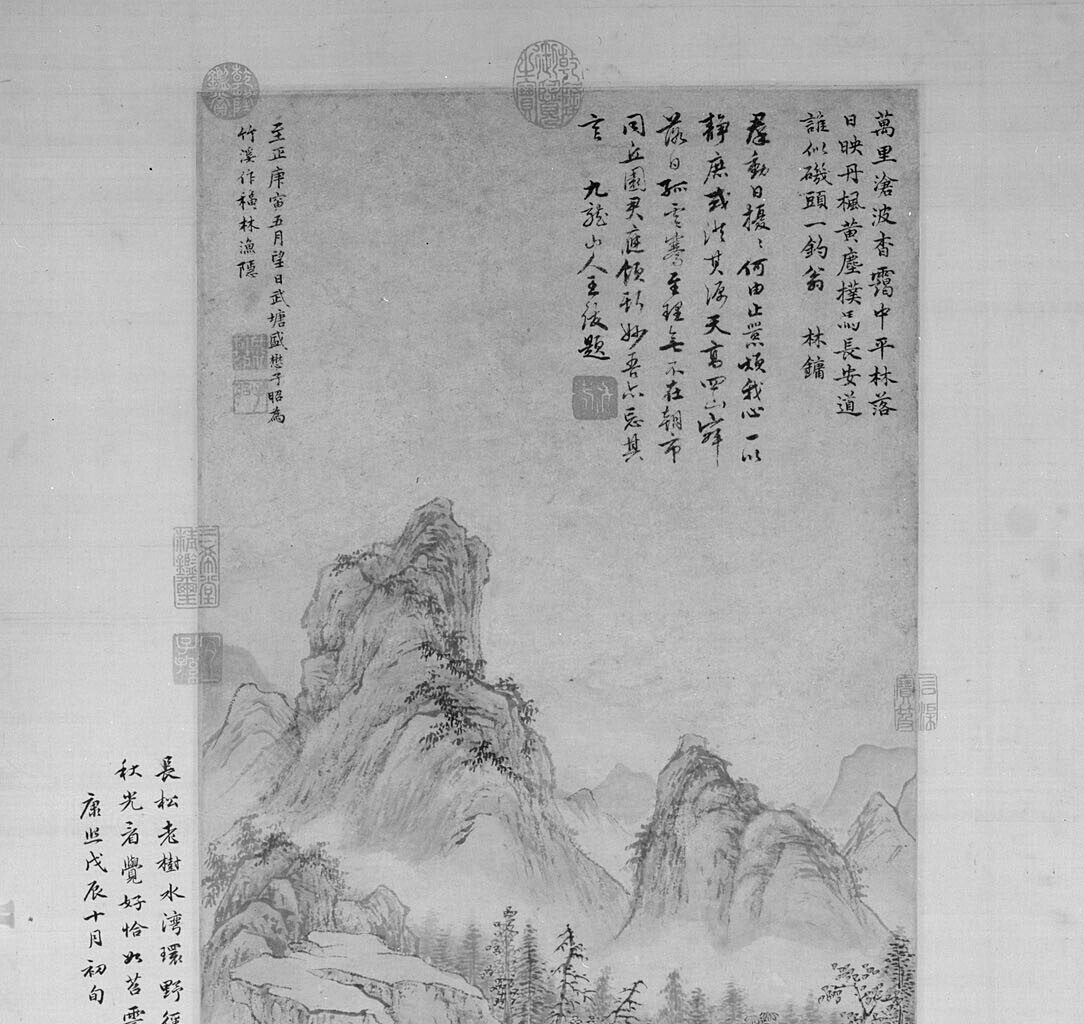 萬里滄波杳靄中平林落
日映丹楓黃塵撲馬長安道
誰似磯頭一釣翁 林鏞
羣動日擾〻何由止囂煩我心一以
靜庶或澄其源天高四山寂
落日孤雲騫至理無不在朝市
同丘園君應領此妙吾亦忘其
言 九龍山人王紱題
至正庚寅五月望日武塘盛懋子昭為
竹溪作穚林漁隱
乾隆御覽之寶
乾隆鑒賞
三希堂精鑑璽
宜子孫
長松老樹水灣環野徑
秋光看覺好恰如苕霅
康熙戊辰十月初旬